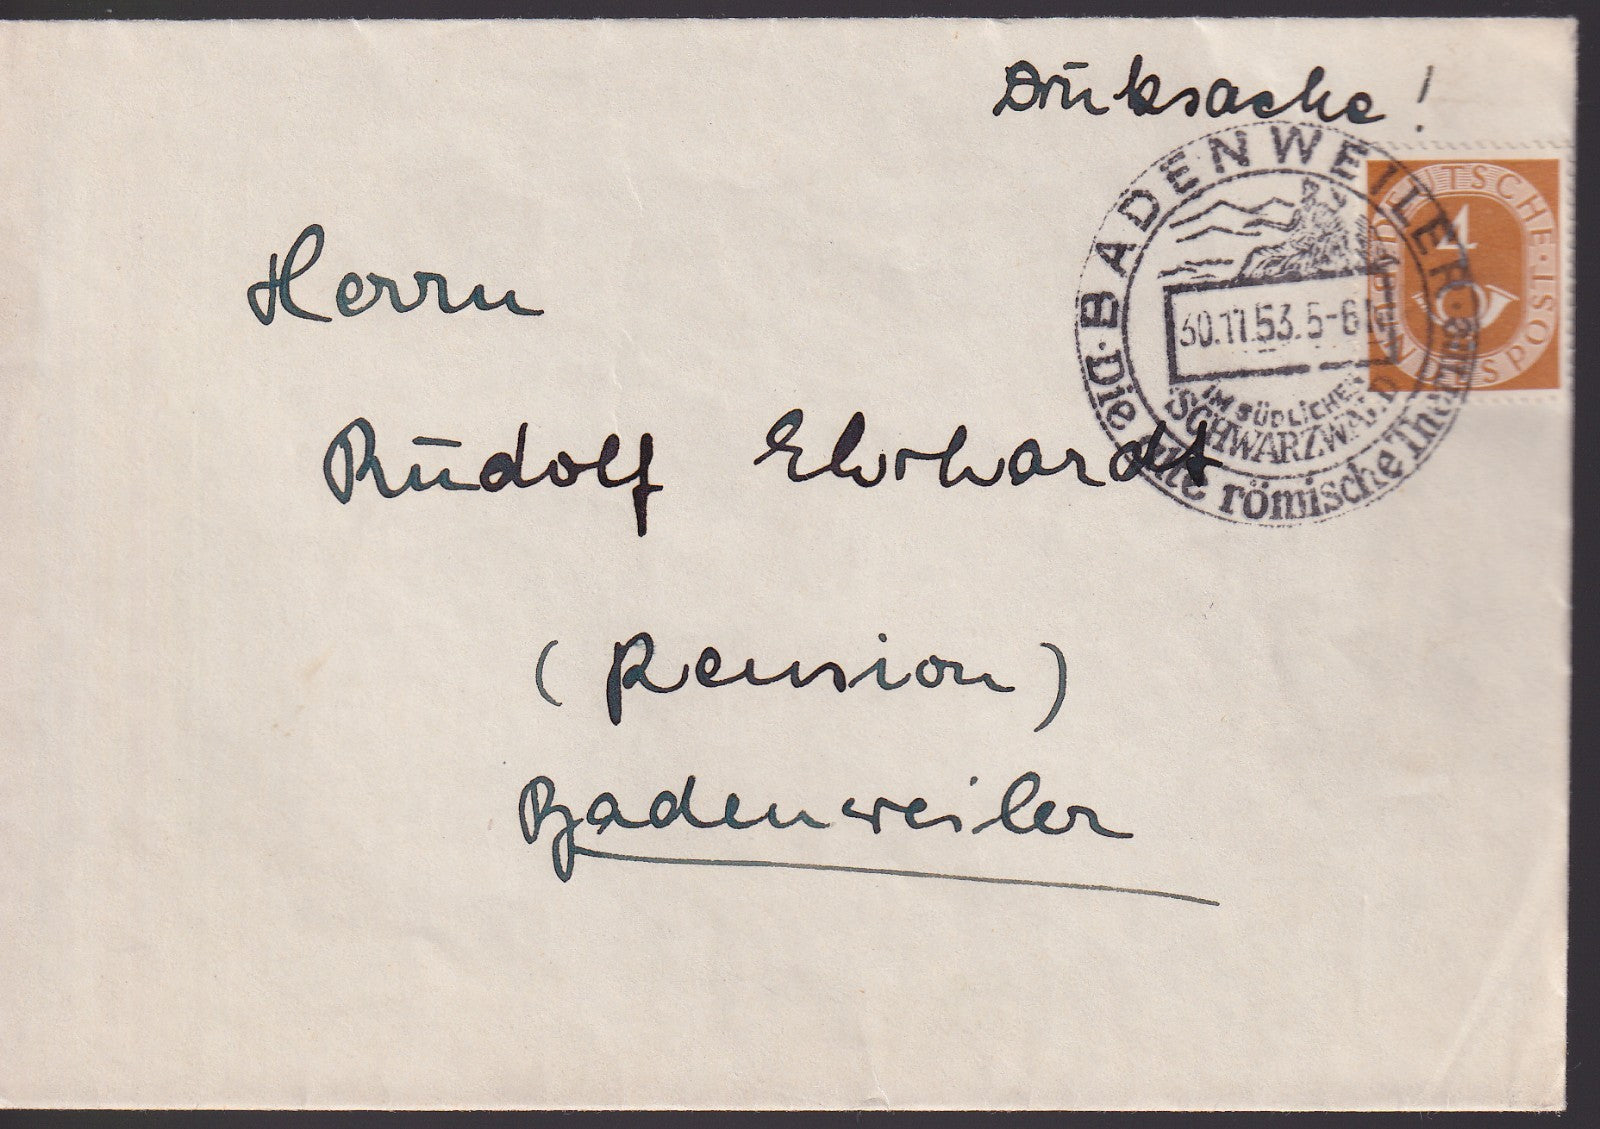 Drucksache!
BADENWEILER
30.11.53.5-6
IM SÜDLICHEN
SCHWARZWALD
Die alte römische
DEUTSCHE·BUNDESPOST
4
Herrn
Rudolf Ehrhardt
(Pension)
Badenweiler